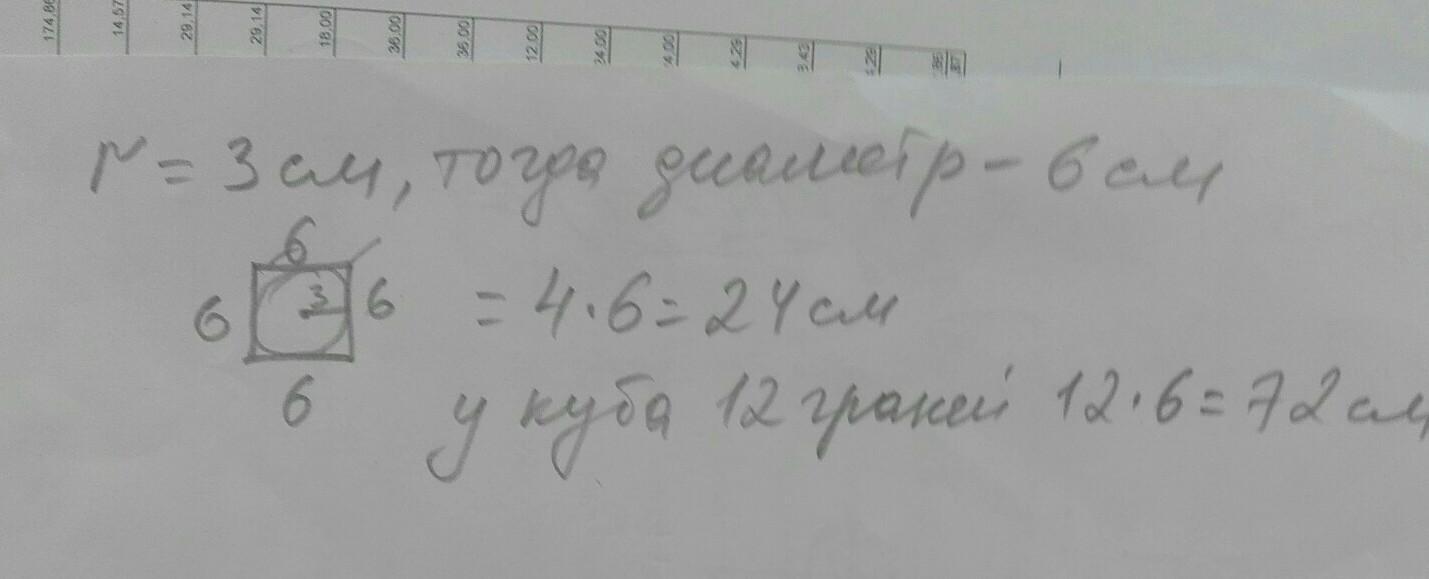 174.86 14.57 29.14 29.14 18.00 36.00 36.00 12.00 24.00 24.00 4.29 3.43 4.29
r = 3 см, тогда диаметр - 6 см
6
6 3 6 = 4·6=24 см
6
у куба 12 граней 12·6=72 см